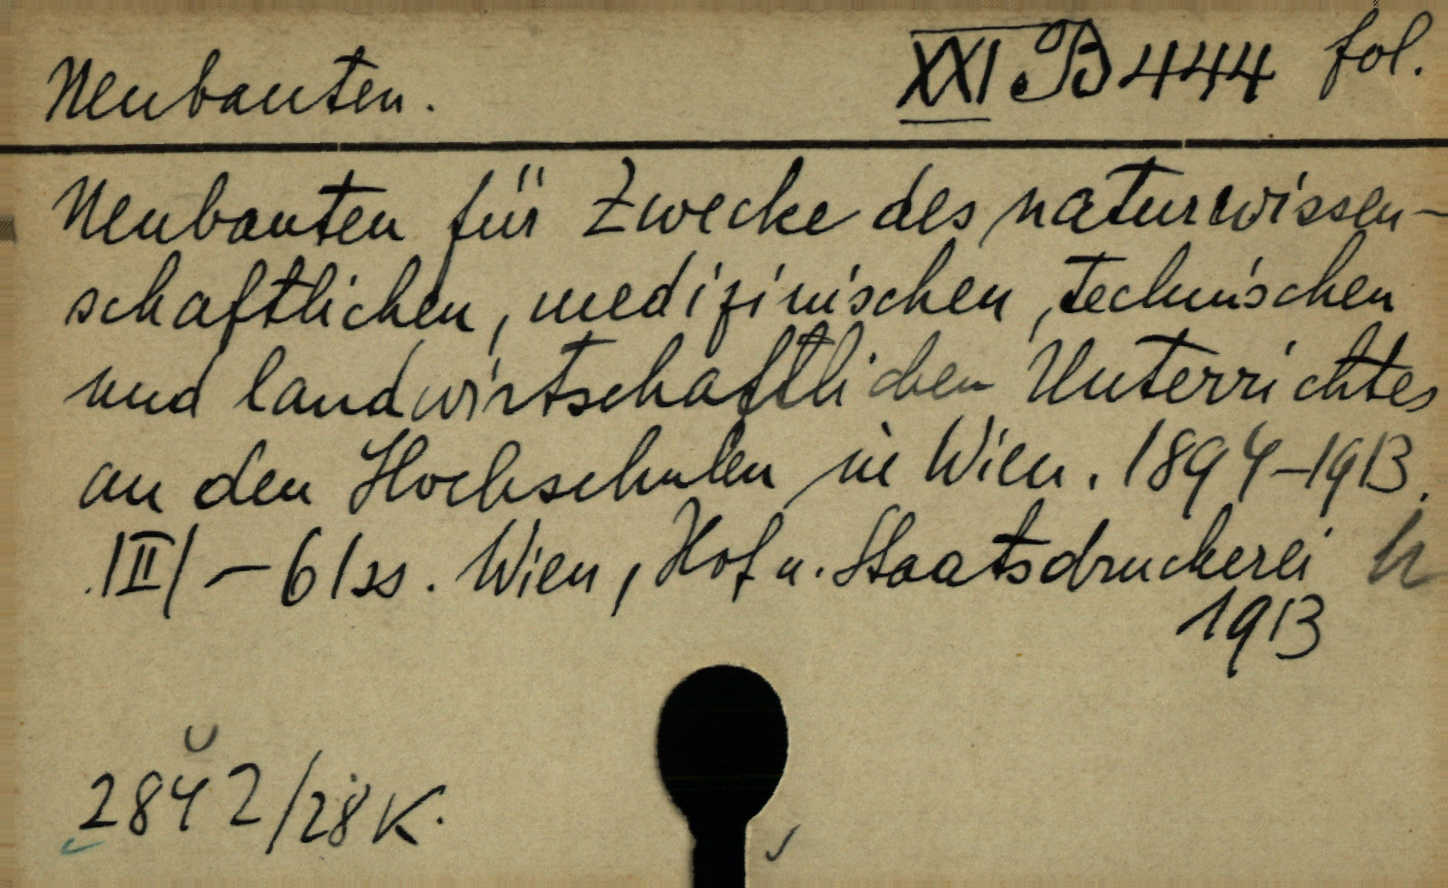 Neubauten. XXI B 444 fol.
Neubauten für Zwecke des naturwissen-
schaftlichen, medizinischen, technischen
und landwirtschaftlichen Unterrichtes
an den Hochschulen in Wien. 1894-1913.
|II| - 61 ss. Wien, Hof u. Staatsdruckerei
1913
2842/28 K.